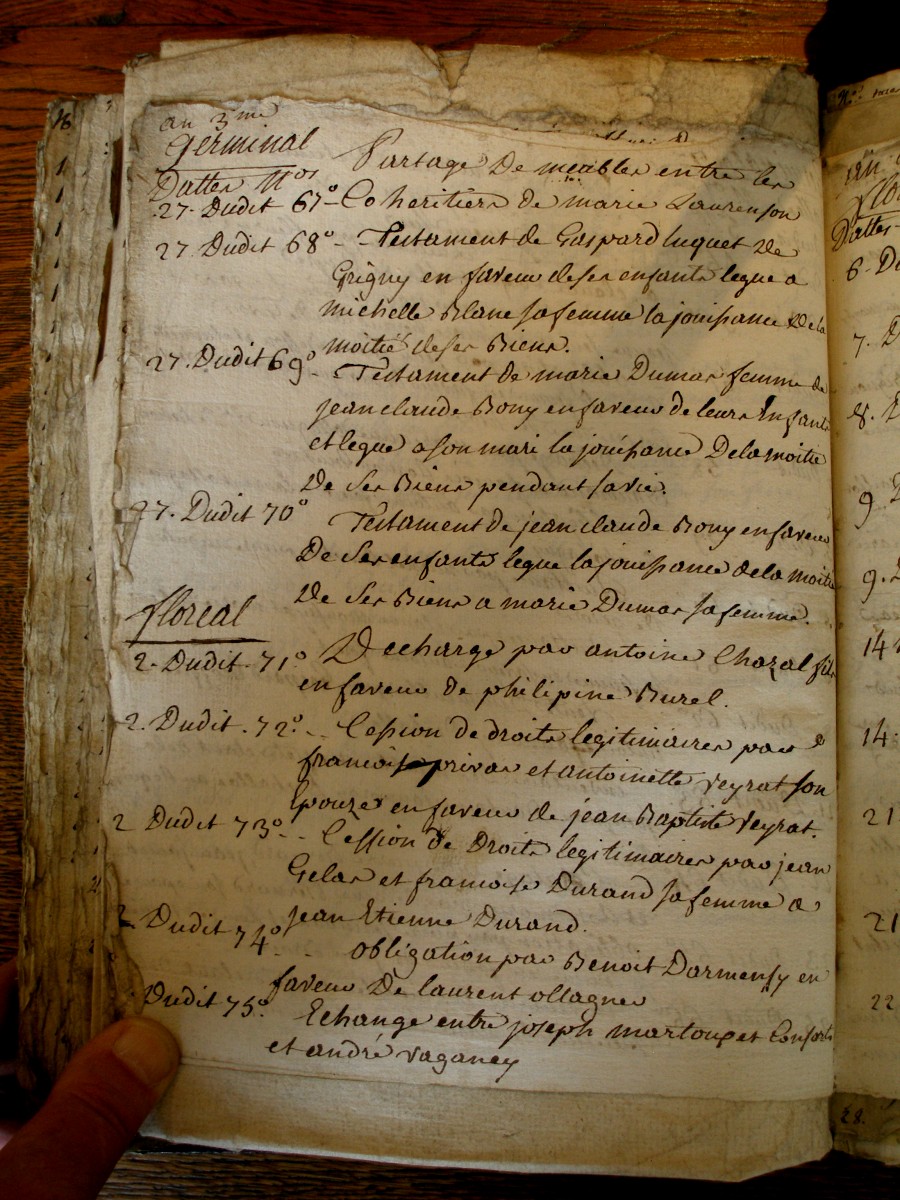 an 3me
Germinal
Dattes Nos Partage De meubles entre les
27. Dudit 67° Coheritiers de marie Laurenson
27 Dudit 68° - Testament de Gaspard luquet De
Grigny en faveur de ses enfants legue a
michelle Blanc sa femme la jouissance De la
moitié de ses Biens.
27. Dudit 69° - Testament de marie Dumas femme de
jean claude Bony en faveur de leurs Enfants
et legue a son mari la jouissance De la moitie
De ses Biens pendant sa vie.
27. Dudit 70° Testament de jean claude Bony en faveur
De ses enfants legue la jouissance de la moitie
De ses Biens a marie Dumas sa femme.
floreal
2. Dudit. 71° Decharge par antoine Chazal fils
en faveur de philipine Burel.
2. Dudit. 72° - Cession de droits legitimaires par
francois privas et antoinette veyrat son
Epouze en faveur de jean Baptiste veyrat.
2 Dudit 73° - Cession de Droits legitimaires par jean
Gelas et francoise Durand sa femme a
jean Etienne Durand.
2 Dudit 74° obligation par Benoit Darmensy en
faveur De laurent ollagner
Dudit 75° Echange entre joseph marloup et Consorts
et andré vaganey
an
Dattes
6. Du
7. D
8. D
9
9.
14
14.
21
21
22
28.